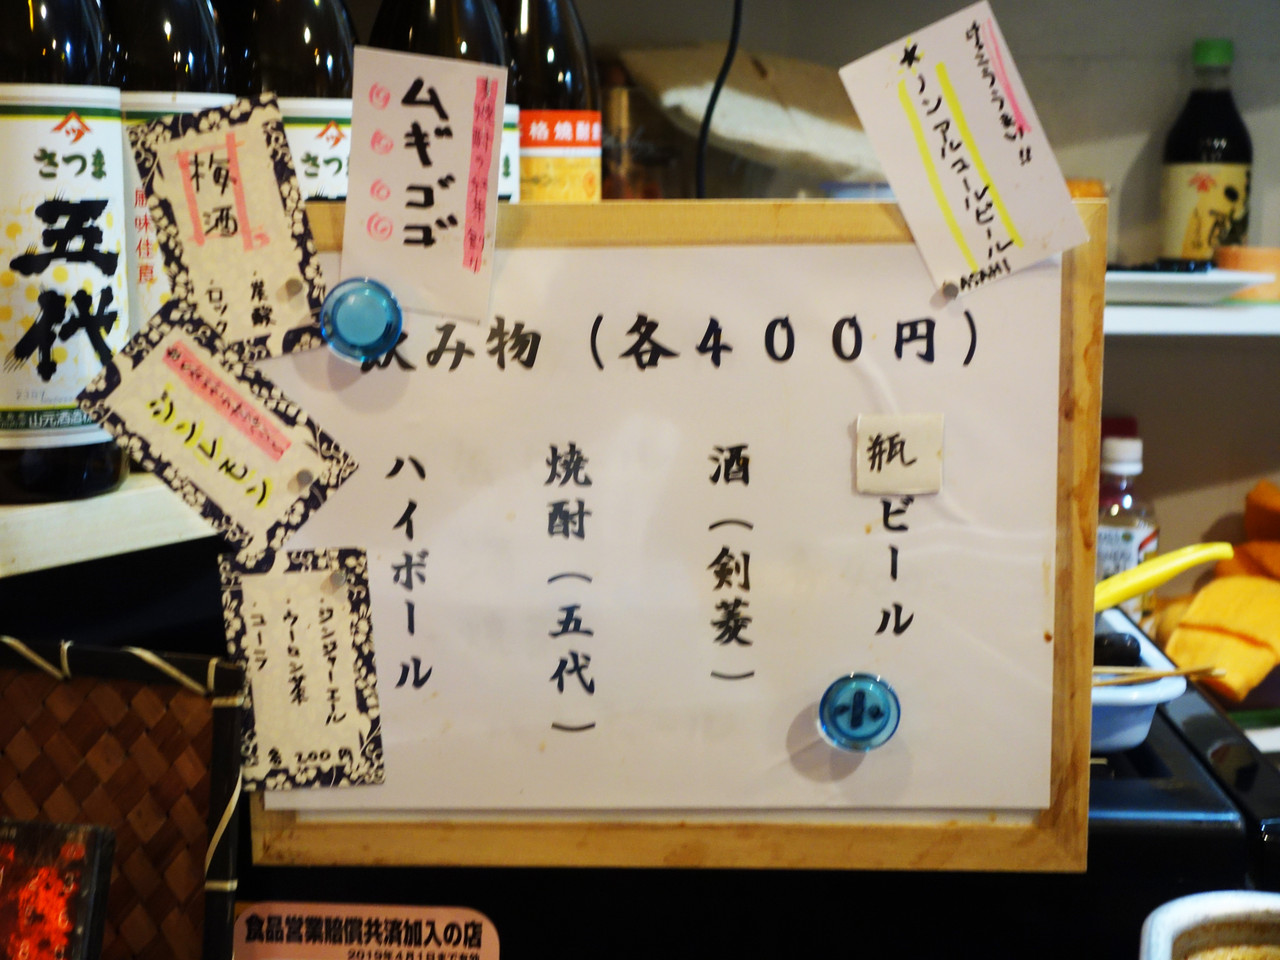 飲み物（各４００円）
瓶
ビール
小
酒（剣菱）
焼酎（五代）
ハイボール
★ノンアルコールビール
ASAHI
ムギゴゴ
梅酒
・炭酸
・ロック
ジンレモン
・ジンジャーエール
・ウーロン茶
・コーラ
各200円
さつま
五代
風味佳良
さつま
格焼酎
食品営業賠償共済加入の店
2019年4月1日まで有効